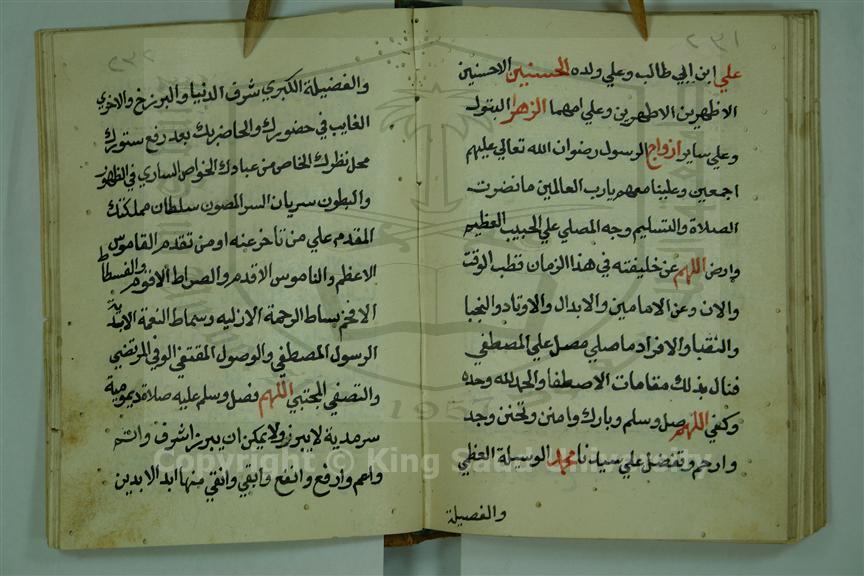 علي ابن ابي طالب وعلي ولده الحسنين الاحسنين
الاظهرين الاطهرين وعلي امهما الزهرا البتول
وعلي ساير ازواج الرسول رضوان الله تعالي عليهم
اجمعين وعلينا معهم يارب العالمين ما نضرت
الصلاة والتسليم وجه المصلي علي الحبيب العظيم
وارض اللهم عن خليفته في هذا الزمان قطب الوقت
والان وعن الامامين والابدال والاوتاد والنجبا
والنقبا والافراد ما صلي مصل علي المصطفي
فنال بذلك مقامات الاصطفا والحمد لله وحده
وكفي اللهم صل وسلم وبارك وامنن وتحنن وجد
وارحم وتفضل علي سيدنا محمد الوسيلة العظي
والفصيلة
والفضيلة الكبري شرف الدنيا والبرزخ والاخري
الغايب في حضورك والحاضر بك بعد رفع ستورك
محل نظرك الخاص من عبادك الخواص الساري في الظهور
والبطون سريان السر المصون سلطان مملكتك
المقدم علي من تأخر عنه او من تقدم القاموس
الاعظم والناموس الاقدم والصراط الاقوم والفسطاط
الافخم بساط الرحمة الازليه وسماط النعمة الابدية
الرسول المصطفي والوصول المقتفي الوفي المرتضي
والتصفي المجتبي اللهم فصل وسلم عليه صلاة ديمومية
سرمدية لا يبرز ولا يمكن ان يبرز اشرف واتم
واعم وارفع وانفع وابقي وانقي منها ابد الابدين
Copyright © King Saud University
1957